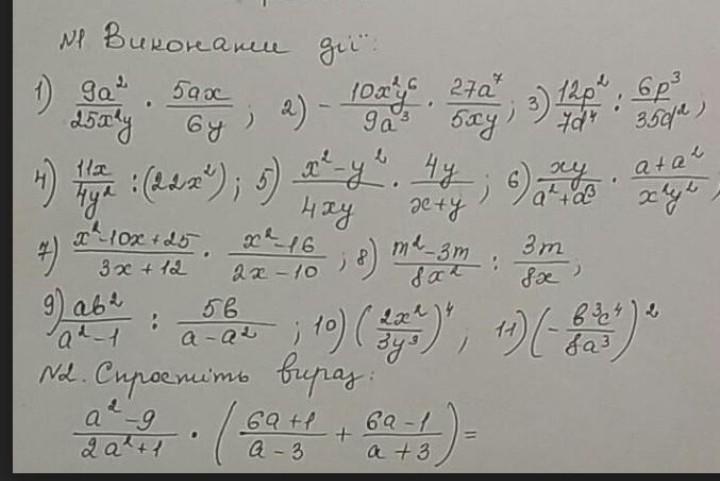 №1 Виконати дії:
1) 9a²/25x²y · 5ax/6y ; 2) - 10x²y⁶/9a³ · 27a⁷/5xy ; 3) 12p²/7d⁴ : 6p³/35d² ,
4) 11x/4y² : (22x²) ; 5) x²-y²/4xy · 4y/x+y ; 6) xy/a²+a³ · a+a²/x²y² ,
7) x²-10x+25/3x+12 · x²-16/2x-10 ; 8) m²-3m/8x² : 3m/8x ,
9) ab²/a²-1 : 5b/a-a² ; 10) (2x²/3y³)⁴ ; 11) (- b³c⁴/8a³)²
№2. Спростіть вираз:
a²-9/2a²+1 · (6a+1/a-3 + 6a-1/a+3) =